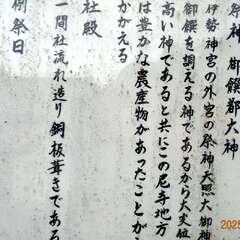 祭神 御饌都大神
伊勢神宮の外宮の祭神天照大御神
御饌を調える神であるから大変位
高い神であると共にこの尼寺地方
は豊かな農産物があったことが
かがえる
社殿
一間社流れ造り銅板葺きである
例祭日
2025